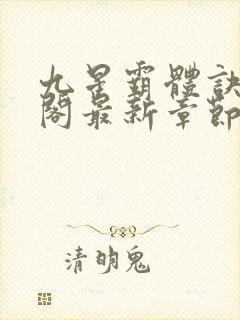 九星霸體訣
閣最新章節
清明鬼